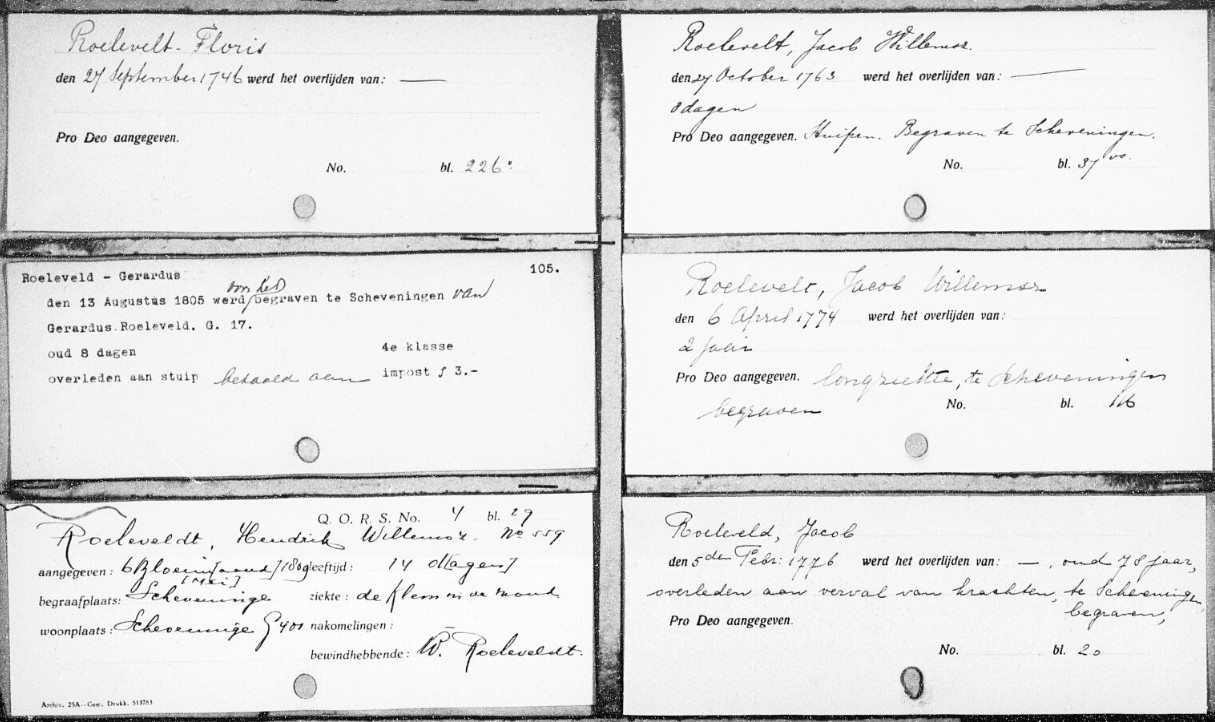 Roelevelt - Floris
den 27 September 1746 werd het overlijden van: —
Pro Deo aangegeven.
No. bl. 226
Roeleveld - Gerardus 105.
den 13 Augustus 1805 werd begraven te Scheveningen van
Gerardus Roeleveld, G. 17.
oud 8 dagen 4e klasse
overleden aan stuip betaald aan impost ƒ 3.-
Q. O. R. S. No. 4 bl. 29
Roeleveldt, Hendrik Willemsz. No 559
aangegeven: 6 Bloeim[aand] 1809 leeftijd: 14 d[agen]
[Mei]
begraafplaats: Scheveninge ziekte: de klem in de mond
woonplaats: Scheveninge G 401 nakomelingen: —
bewindhebbende: W. Roeleveldt.
Archiv. 25A—Gem. Drukk. 513783
Roelevelt, Jacob Willemsz.
den 27 October 1763 werd het overlijden van: —
8 dagen
Pro Deo aangegeven. Stuipen. Begraven te Scheveningen.
No. bl. 37 vo.
Roelevelt, Jacob Willemsz
den 6 April 1774 werd het overlijden van:
2 jaar
Pro Deo aangegeven. longziekte, te Scheveningen
begraven No. bl.
Roeleveld, Jacob
den 5den Febr: 1776 werd het overlijden van: —, oud 78 jaar,
overleden aan verval van krachten, te Scheveningen
begraven,
Pro Deo aangegeven.
No. bl. 20